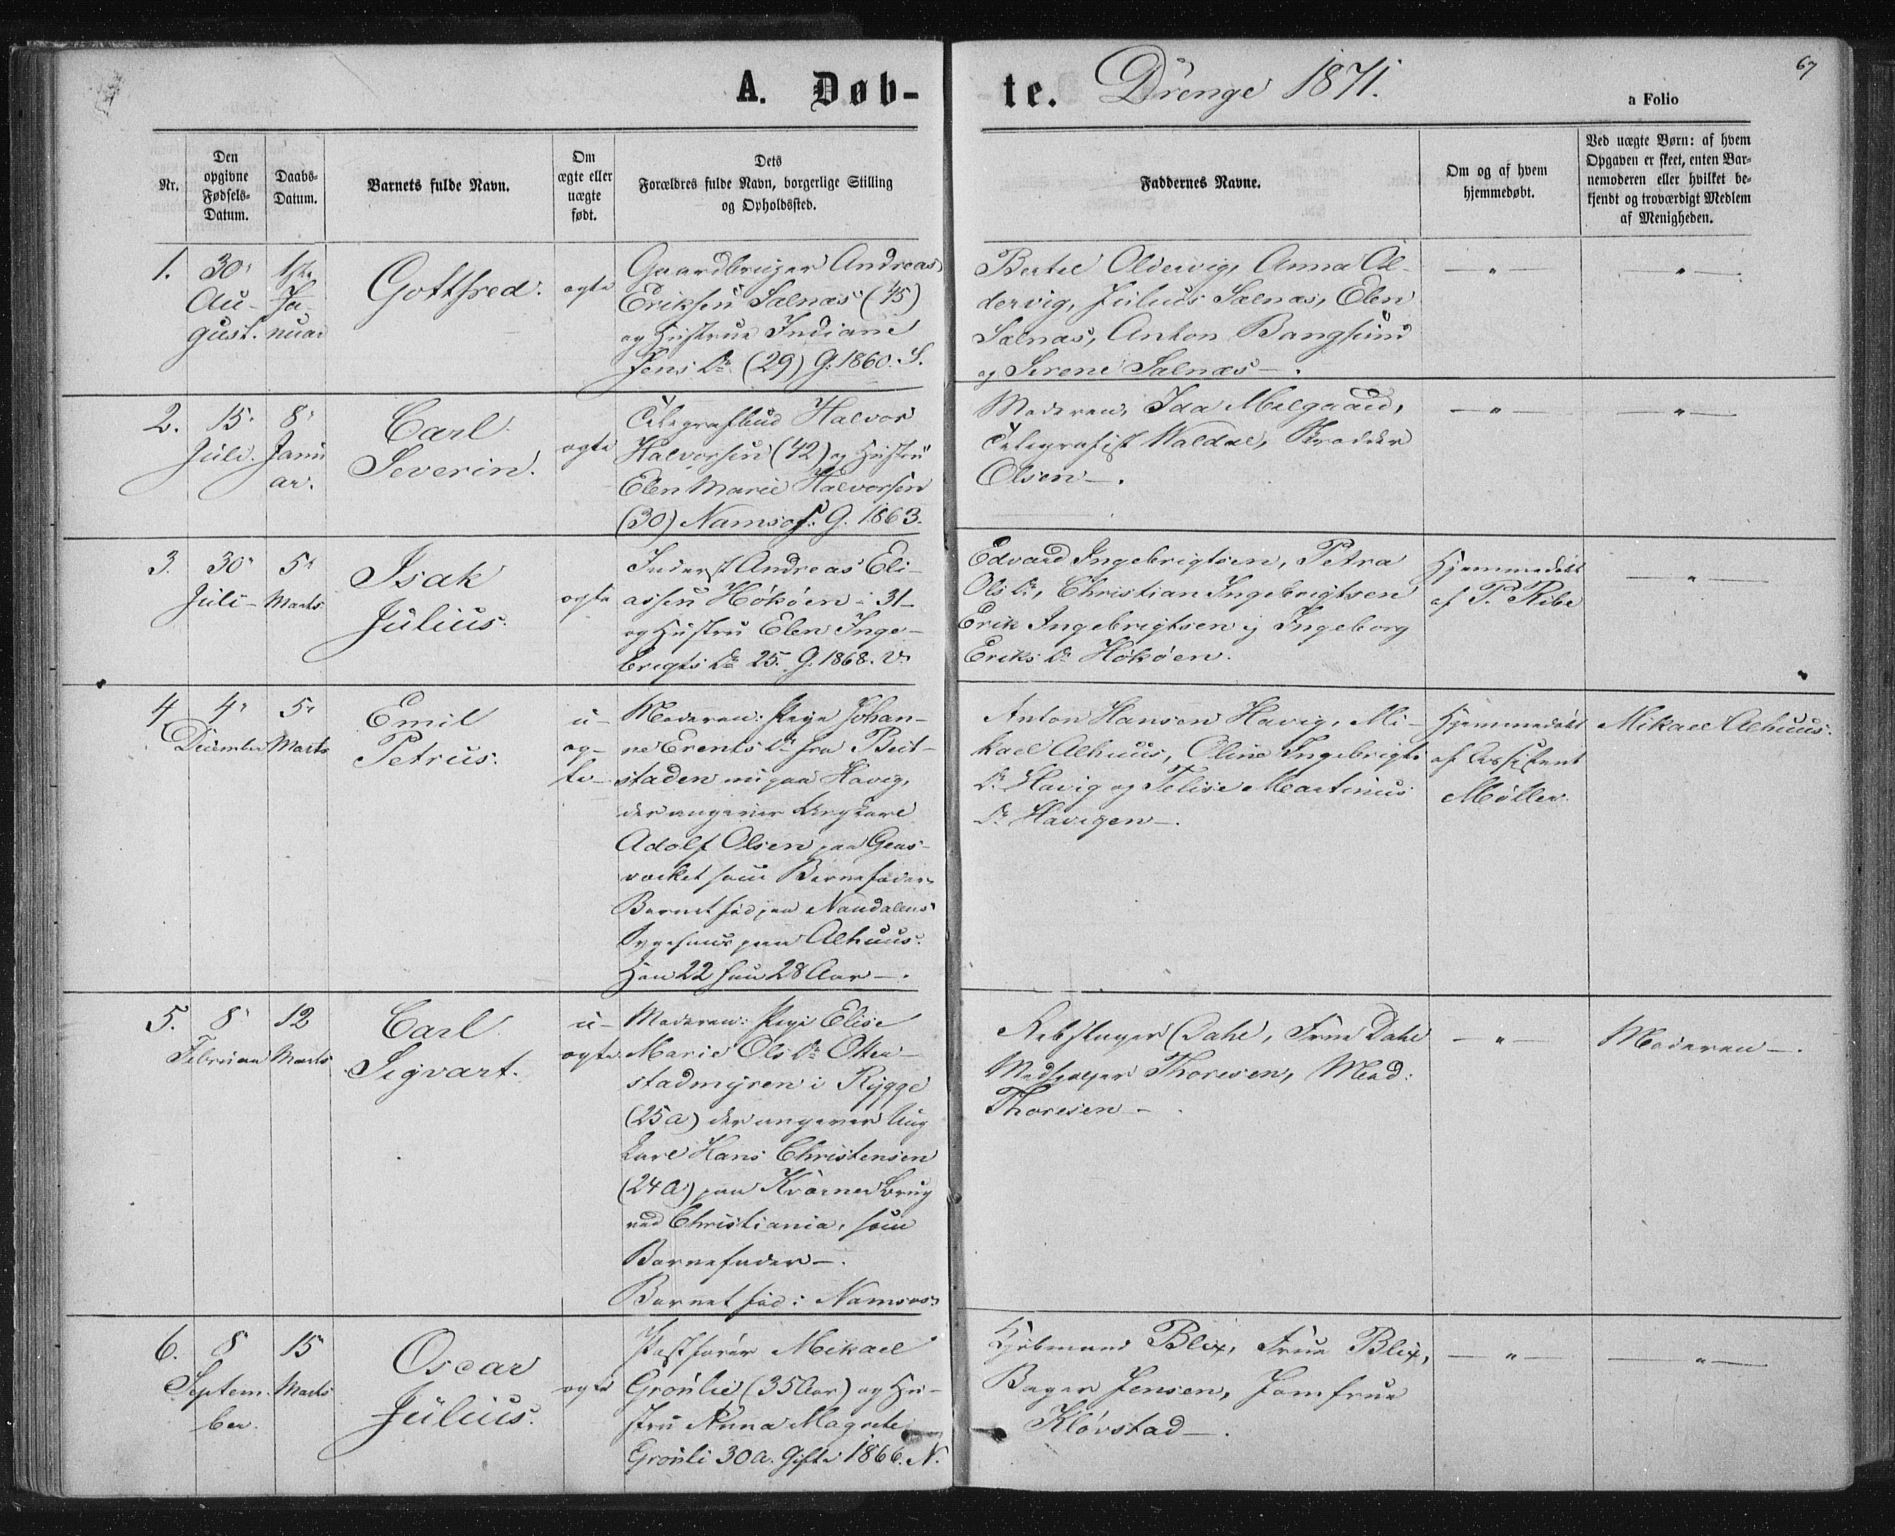 A. Døb-
te. Drenge 1871.
67
a Folio
Nr.
Den
opgivne
Fødsels-
Datum.
Daabs-
Datum.
Barnets fulde Navn.
Om
ægte eller
uægte
født.
Dets
Forældres fulde Navn, borgerlige Stilling
og Opholdssted.
Faddernes Navne.
Om og af hvem
hjemmedøbt.
Ved uægte Børn: af hvem
Opgaven er skeet, enten Bar-
nemoderen eller hvilket be-
kjendt og troværdigt Medlem
af Menigheden.
1.
30'
Au-
gust.
1ste
Ja-
nuar
Gottfred.
ægte
Gaardbruger Andreas
Eriksen Salnæs (45)
og Hustrue Indiane
Jens Dr. (29) G. 1860. S.
Bertel Oldervig, Anna Ol-
dervig, Julius Salnæs, Elen
Salnæs, Anton Bangsund
og Serene Salnæs—.
—"—
—"—
2.
15'
Juli.
8'
Janu
ar.
Carl
Severin.
ægte
Telegrafbud Halvor
Halvorsen (42) og Hustru
Elen Marie Halvorsen
(30) Namsos. G. 1863.
Moderen, Ida Melgaard,
Telegrafist Waldal,
Olsen—.
—"—
—"—
3.
30'
Juli-
5'
Marts
Isak
Julius.
ægte
Inderst Andreas Eli-
assen Høkøen - 31-
og Hustru Elen Inge-
brigts Dr. 25. G. 1868. V.
Edvard Ingebrigtsen, Petra
Ols Dr, Christian Ingebrigtsen
Erik Ingebrigtsen og Ingeborg
Eriks Dr. Høkøen.
Hjemmedøbt
af P. Ribe
—"—
4
4'
December
5'
Marts
Emil
Petrus.
u-
æg-
te-
Moderen: Pige Johan-
ne Erents Dr fra Beit-
staden nu paa Havig,
der angiver Ungkarl
Adolf Olsen paa
som Barnefader.
Barnet fød paa Namdalens
Sygehuus paa Alhuus.
Han 22 hun 28 Aar—.
Anton Hansen Havig, Mi-
kael Alhuus, Oline Ingebrigts
Dr. Havig og Felise Martinus
Dr. Havigen—.
Hjemmedøbt
af Assistent
Møller.
Mikael Alhuus.
5.
8'
Februar
12
Marts
Carl
Sigvart.
u-
ægte
Moderen: Pige Elise
Marie Ols Dr. Otter-
stadmyren i Rygge
(25 a) der angiver Ung
karl Hans Christensen
(24 a) paa Kværner Brug
ved Christiania, som
Barnefader—.
Barnet fød i Namsos.
Rebslager Dahl, Frue Dahl
Thoresen, Mad.
Thoresen—
—"—
Moderen—.
6.
8
Septem-
ber.
15
Marts
Oscar
Julius.
ægte
Postfører Mikael
Grønlie (35 Aar) og Hu-
stru Anna Magrete
Grønli 30 a. Gifte 1866. N.
Kjøbmand Blix, Frue Blix,
Bager Jensen, Jomfrue
Kløvstad—.
—"—
—"—